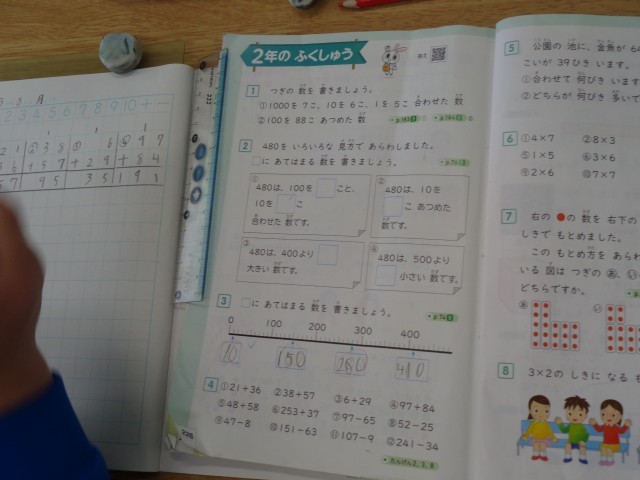 2年の ふくしゅう
1 つぎの 数を 書きましょう。
①1000を 7こ、10を 6こ、1を 5こ 合わせた 数
②100を 88こ あつめた 数
2 480を いろいろな 見方で あらわしました。
□に あてはまる 数を 書きましょう。
① 480は、100を □こと、
10を □こ
合わせた 数です。
② 480は、10を
□こ あつめた
数です。
③ 480は、400より □
大きい 数です。
④ 480は、500より
□ 小さい 数です。
3 □に あてはまる 数を 書きましょう。
0 100 200 300 400
70 150 280 410
4 ①21+36 ②38+57 ③6+29 ④97+84
⑤48+58 ⑥253+37 ⑦97-65 ⑧52-25
⑨47-8 ⑩151-63 ⑪107-9 ⑫241-34
226
5 公園の 池に、金魚が
こいが 39ひき います。
①合わせて 何びき います
②どちらが 何びき 多いで
6 ①4×7 ②8×3
⑤1×5 ⑥3×6
⑨2×6 ⑩7×7
7 右の ●の 数を 右下の
しきで もとめました。
この もとめ方を あらわ
いる 図は つぎの あ、い
どちらですか。
あ い
8 3×2の しきに なる も